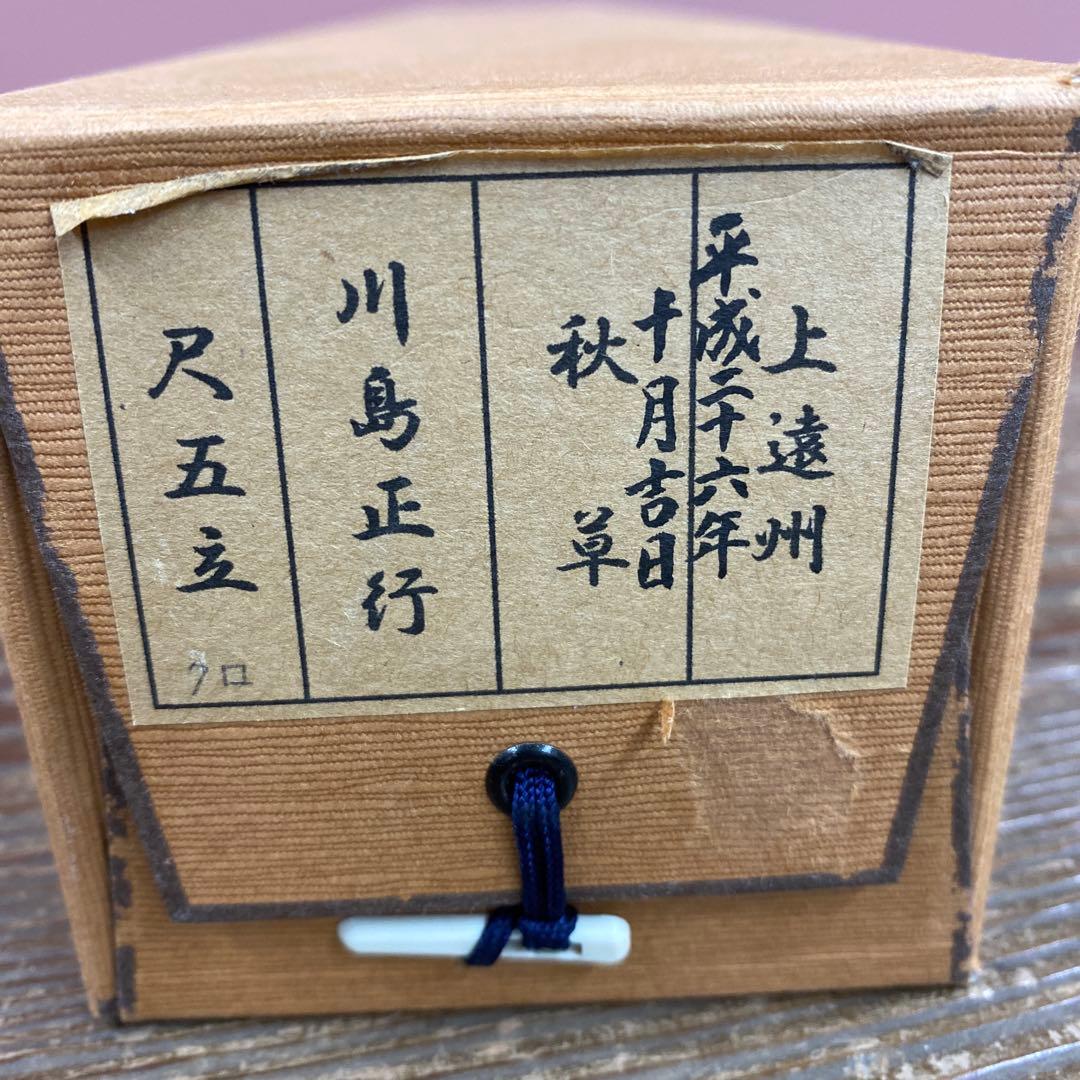 上遠州
平成二十六年
十月吉日
秋草
川島正行
尺五立
クロ